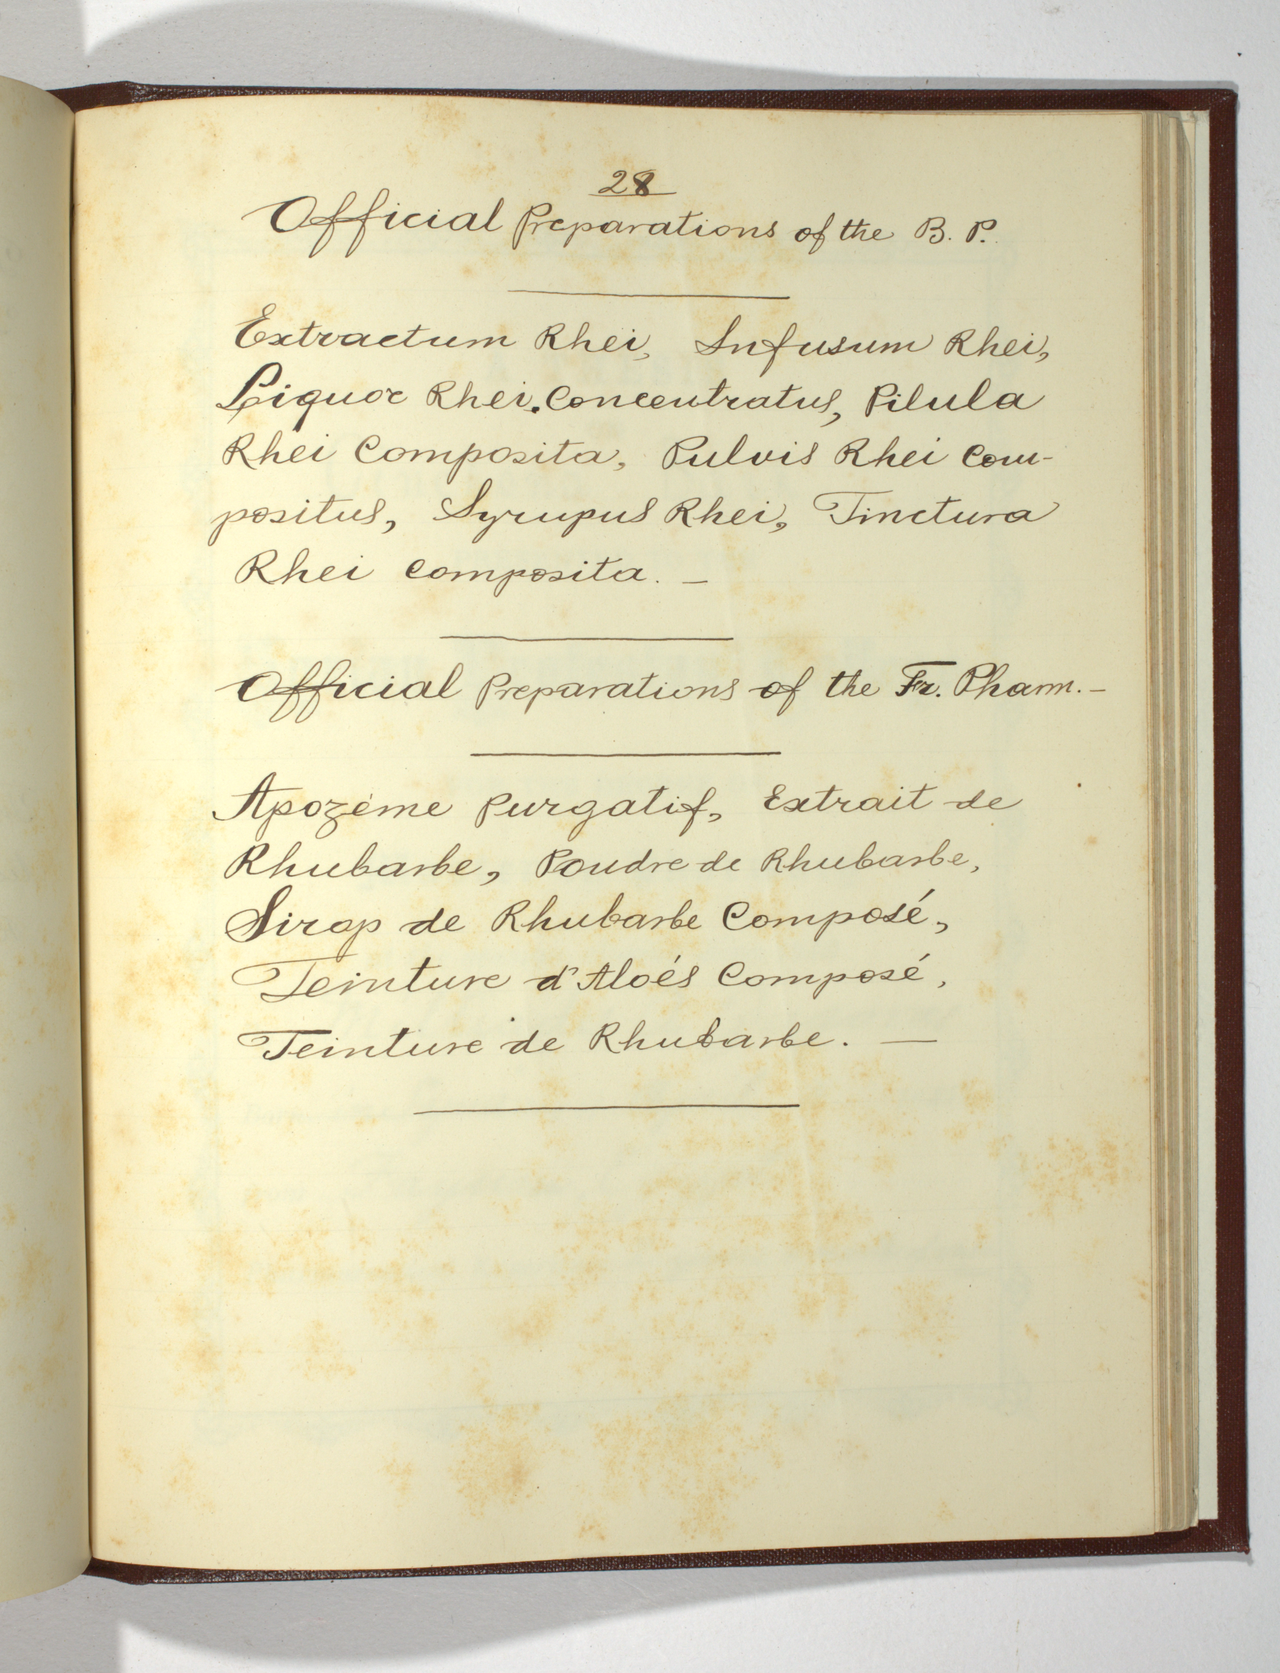 28
Official Preparations of the B. P.
Extractum Rhei, Infusum Rhei,
Liquor Rhei. Concentratus, Pilula
Rhei Composita, Pulvis Rhei Com-
positus, Syrupus Rhei, Tinctura
Rhei Composita. —
Official Preparations of the Fr. Pharm. —
Apozéme Purgatif, Extrait de
Rhubarbe, Poudre de Rhubarbe,
Sirop de Rhubarbe Composé,
Teinture d'Aloés Composé,
Teinture de Rhubarbe. —